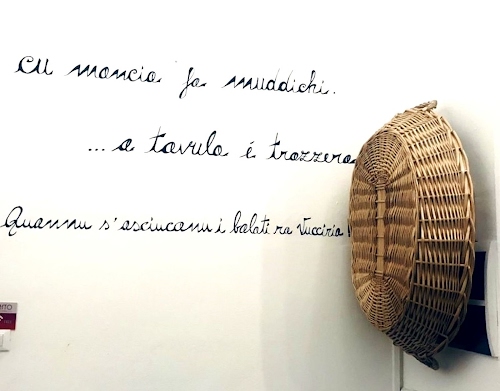 cu mancia fa muddichi.
... a tavula é trazzera
Quannu s'asciucanu i balati ra Vucciria!